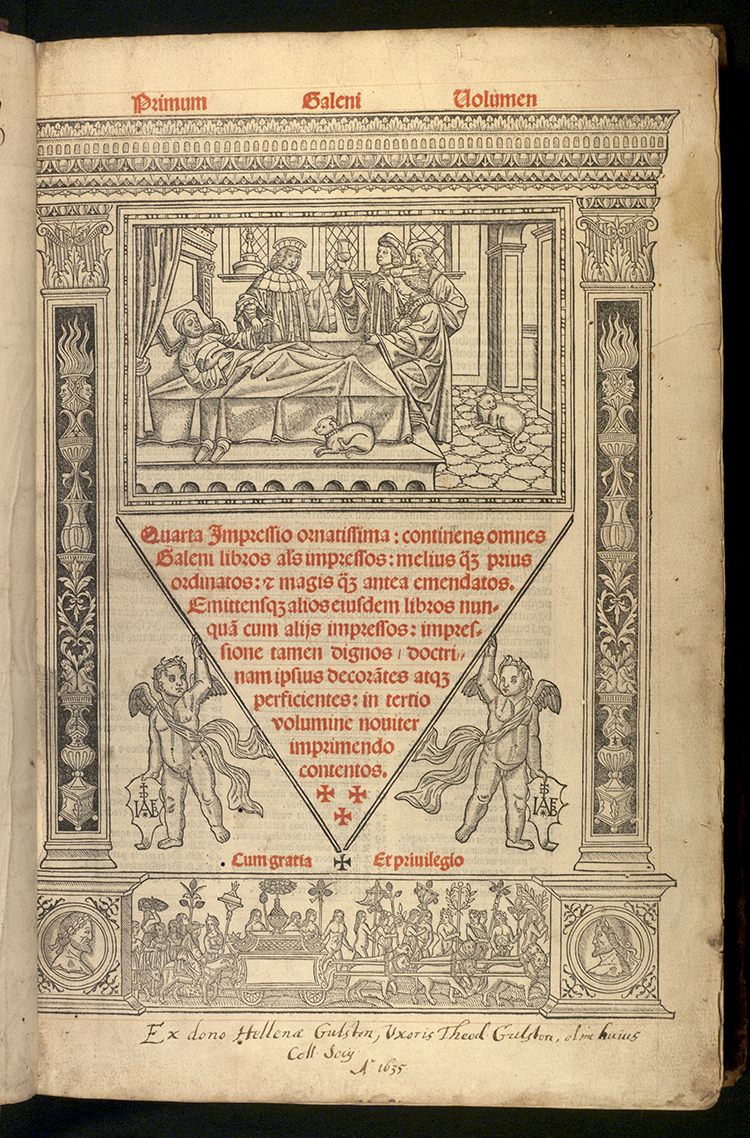 Primum Galeni Uolumen
Quarta Impressio ornatissima : continens omnes
Galeni libros als̄ impressos : melius q̄ꝫ prius
ordinatos : ⁊ magis q̄ꝫ antea emendatos.
Emittensqꝫ alios eiusdem libros nun-
quā cum alijs impressos : impres-
sione tamen dignos / doctri-
nam ipsius decorātes atqꝫ
perficientes : in tertio
volumine noviter
imprimendo
contentos.
Cum gratia ✠ Et privilegio
Ex dono Hellenæ Gulston, Uxoris Theod Gulston, huius
Coll. Socij
A° 1635